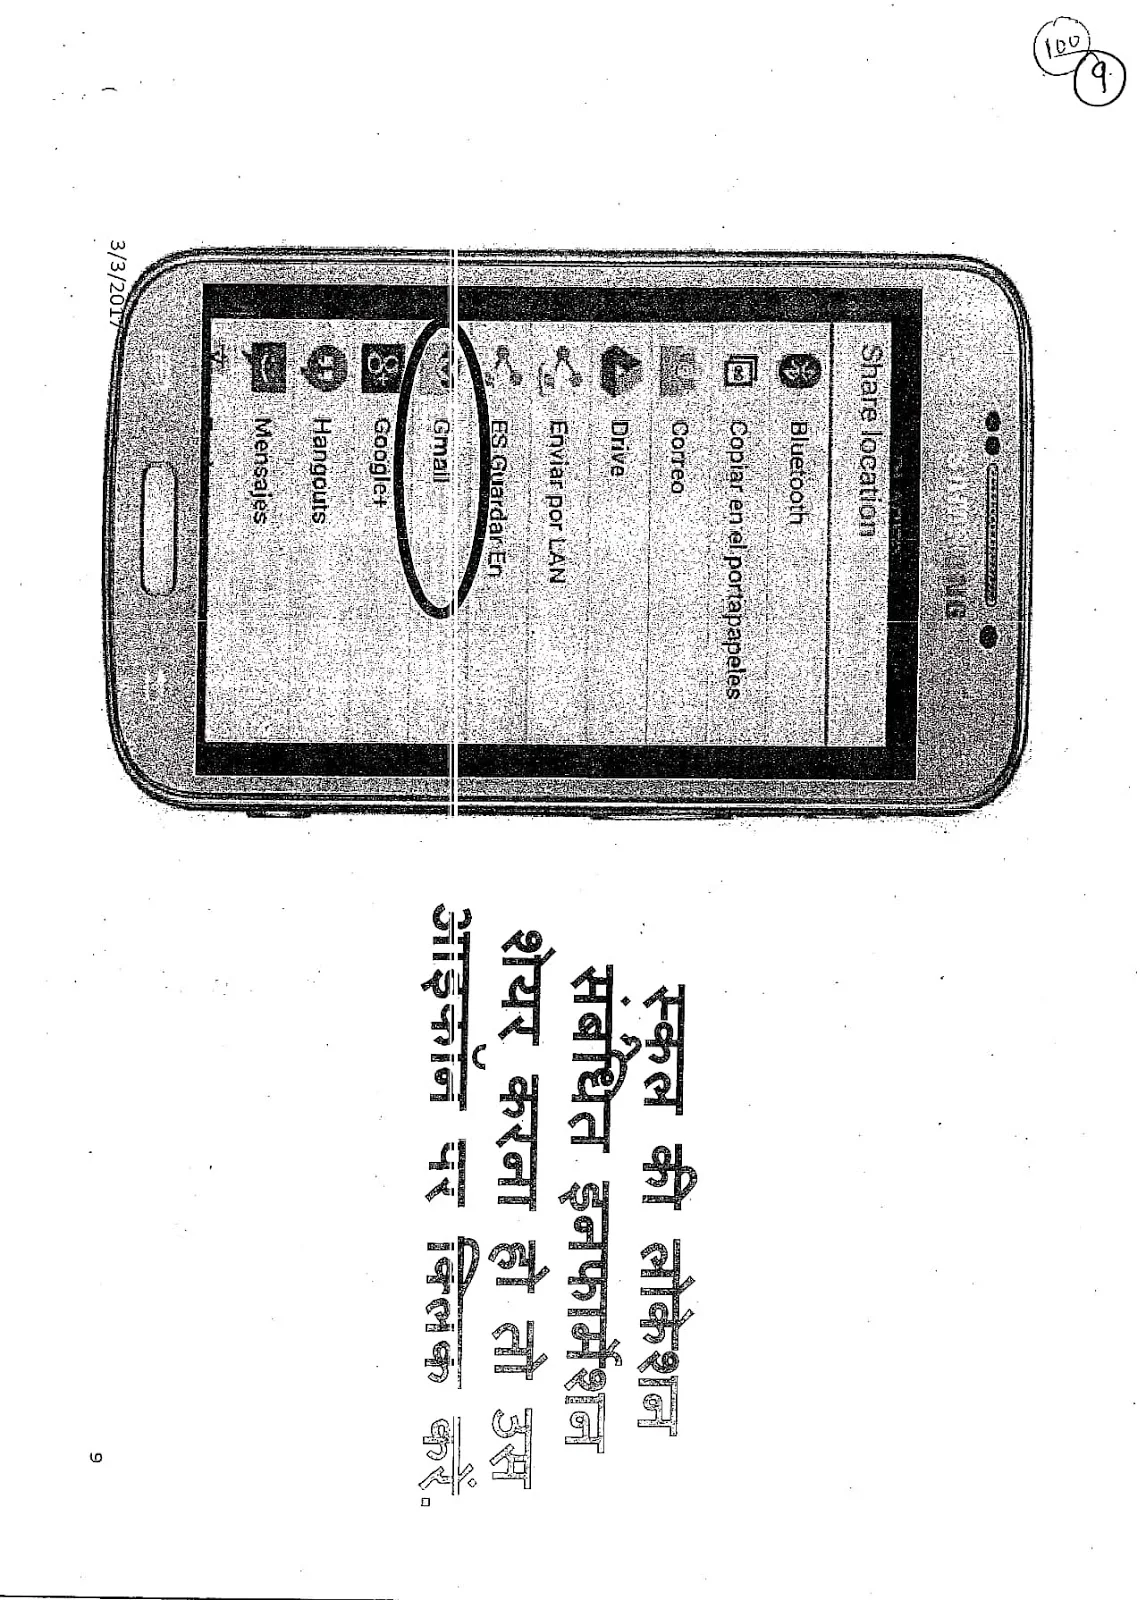 100
9
SAMSUNG
Share location
Bluetooth
Copiar en el portapapeles
Correo
Drive
Enviar por LAN
ES Guardar En
Gmail
Google+
Hangouts
Mensajes
स्कूल की लोकेशन
संबंधित इनफार्मेशन
शेयर करना हो तो उस
आइकॉन पर क्लिक करें.
3/3/2017
9